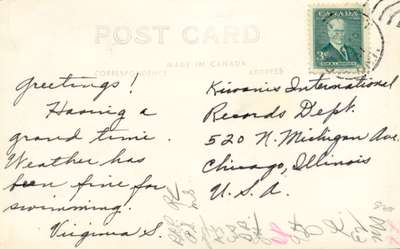 POST CARD
MADE IN CANADA
CORRESPONDENCE
ADDRESS
CANADA
3
Greetings!
Having a
grand time.
Weather has
been fine for
swimming.
Virginia S.
Kiwanis International
Records Dept.
520 N. Michigan Ave.
Chicago, Illinois
U.S.A.